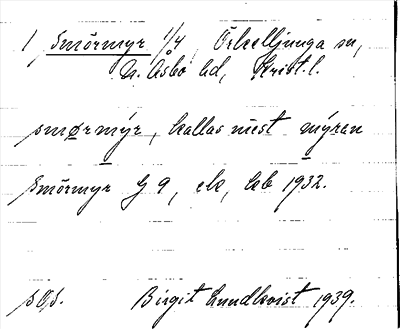 1 Smörmyr 1/4, Örkelljunga sn,
N. Åsbo hd, Krist. l.
smørmýr, kallas mest mýran
Smörmyr G 9, ek, kb 1932.
Birgit Lundkvist 1939.